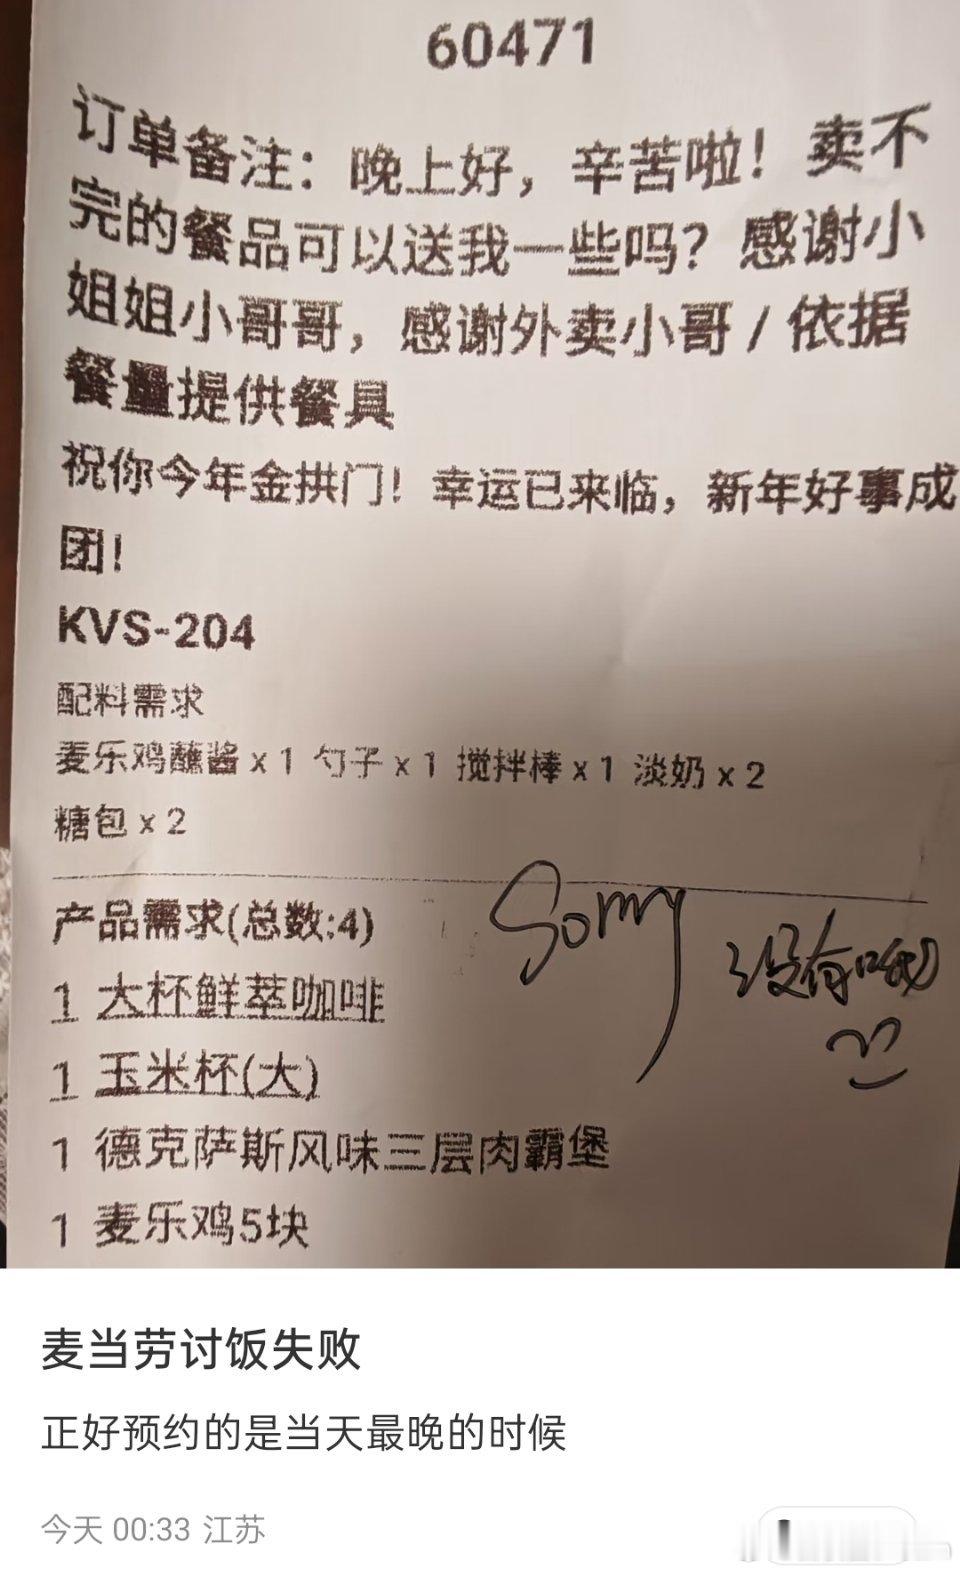 60471
订单备注：晚上好，辛苦啦！卖不
完的餐品可以送我一些吗？感谢小
姐姐小哥哥，感谢外卖小哥 / 依据
餐量提供餐具
祝你今年金拱门！幸运已来临，新年好事成
团！
KVS-204
配料需求
麦乐鸡蘸酱 x 1 勺子 x 1 搅拌棒 x 1 淡奶 x 2
糖包 x 2
产品需求(总数:4)
Sorry 没有哦
1 大杯鲜萃咖啡
1 玉米杯(大)
1 德克萨斯风味三层肉霸堡
1 麦乐鸡5块
麦当劳讨饭失败
正好预约的是当天最晚的时候
今天 00:33 江苏